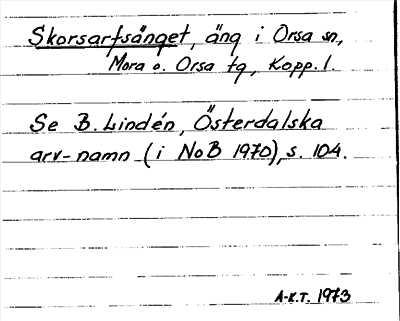 Skorsarfsänget, äng i Orsa sn,
Mora o. Orsa tg, Kopp. l.
Se B. Lindén, Österdalska
arv-namn (i NoB 1970), s. 104.
A-K.T. 1973